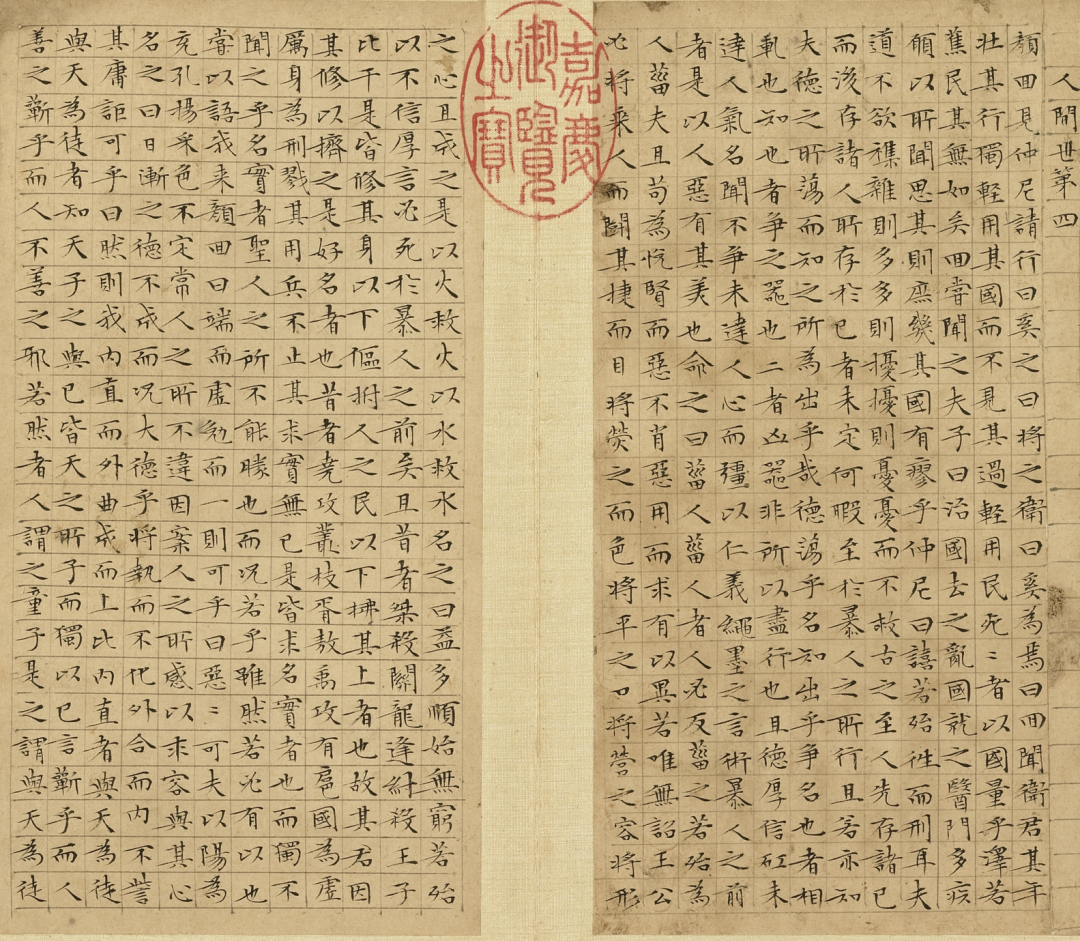 人間世第四
顏回見仲尼請行曰奚之曰將之衛曰奚為焉曰回聞衛君其年
壯其行獨輕用其國而不見其過輕用民死〻者以國量乎澤若
蕉民其無如矣回嘗聞之夫子曰治國去之亂國就之醫門多疾
願以所聞思其則庶幾其國有瘳乎仲尼曰譆若殆往而刑耳夫
道不欲襍雜則多多則擾擾則憂憂而不救古之至人先存諸己
而後存諸人所存於己者未定何暇至於暴人之所行且若亦知
夫德之所蕩而知之所為出乎哉德蕩乎名知出乎爭名也者相
軋也知也者爭之器也二者凶器非所以盡行也且德厚信矼未
達人氣名聞不爭未達人心而彊以仁義繩墨之言術暴人之前
者是以人惡有其美也命之曰菑人菑人者人必反菑之若殆為
人菑夫且苟為悅賢而惡不肖惡用而求有以異若唯無詔王公
必將乘人而鬭其捷而目將熒之而色將平之口將營之容將形
嘉慶御覽之寶
之心且成之是以火救火以水救水名之曰益多順始無窮若殆
以不信厚言必死於暴人之前矣且昔者桀殺關龍逢紂殺王子
比干是皆修其身以下傴拊人之民以下拂其上者也故其君因
其修以擠之是好名者也昔者堯攻叢枝胥敖禹攻有扈國為虛
厲身為刑戮其用兵不止其求實無已是皆求名實者也而獨不
聞之乎名實者聖人之所不能勝也而況若乎雖然若必有以也
嘗以語我來顏回曰端而虛勉而一則可乎曰惡〻可夫以陽為
充孔揚采色不定常人之所不違因案人之所感以求容與其心
名之曰日漸之德不成而況大德乎將執而不化外合而內不訾
其庸詎可乎曰然則我內直而外曲成而上比內直者與天為徒
與天為徒者知天子之與己皆天之所子而獨以己言蘄乎而人
善之蘄乎而人不善之邪若然者人謂之童子是之謂與天為徒